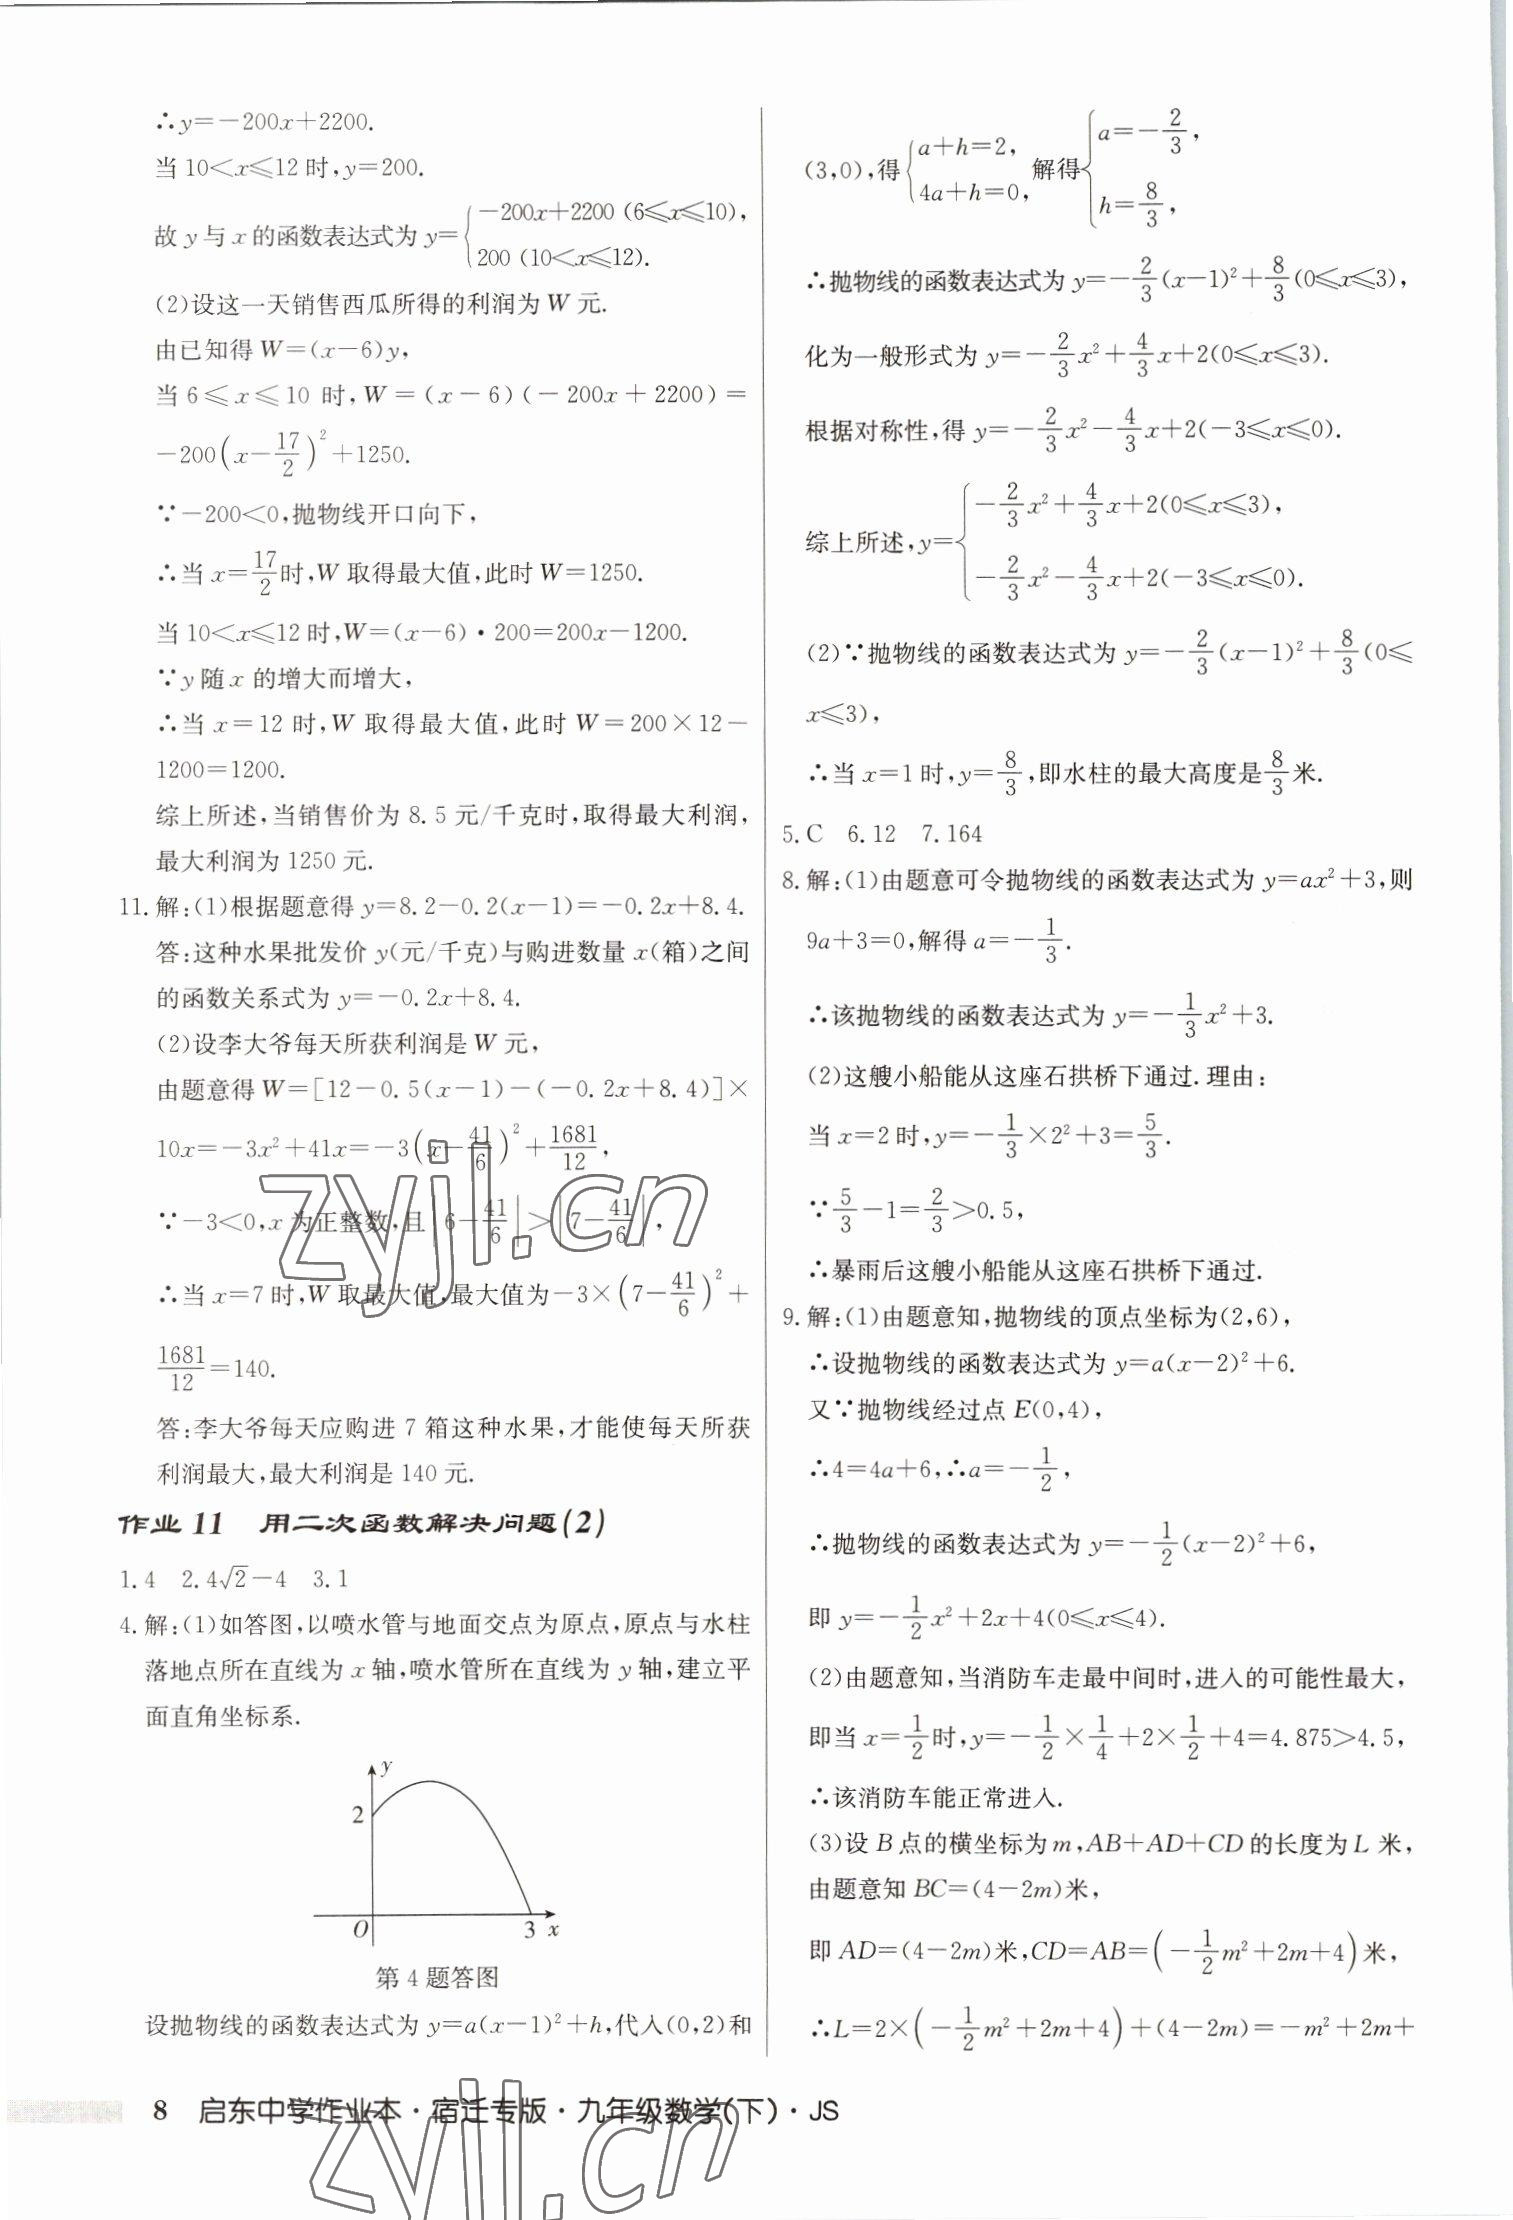 ∴y=-200x+2200.
当 10<x≤12 时,y=200.
故 y 与 x 的函数表达式为 y={-200x+2200 (6≤x≤10),
200 (10<x≤12).
(2)设这一天销售西瓜所得的利润为 W 元.
由已知得 W=(x-6)y,
当 6≤x≤10 时,W=(x-6)(-200x+2200)=
-200(x-17/2)²+1250.
∵-200<0,抛物线开口向下,
∴当 x=17/2时,W 取得最大值,此时 W=1250.
当 10<x≤12 时,W=(x-6)·200=200x-1200.
∵y 随 x 的增大而增大,
∴当 x=12 时,W 取得最大值,此时 W=200×12-
1200=1200.
综上所述,当销售价为 8.5 元/千克时,取得最大利润,
最大利润为 1250 元.
11.解:(1)根据题意得 y=8.2-0.2(x-1)=-0.2x+8.4.
答:这种水果批发价 y(元/千克)与购进数量 x(箱)之间
的函数关系式为 y=-0.2x+8.4.
(2)设李大爷每天所获利润是 W 元,
由题意得 W=[12-0.5(x-1)-(-0.2x+8.4)]×
10x=-3x²+41x=-3(x-41/6)²+1681/12,
∵-3<0,x 为正整数,且|6-41/6|>|7-41/6|,
∴当 x=7 时,W 取最大值,最大值为-3×(7-41/6)²+
1681/12=140.
答:李大爷每天应购进 7 箱这种水果,才能使每天所获
利润最大,最大利润是 140 元.
作业 11 用二次函数解决问题(2)
1.4 2.4√2-4 3.1
4.解:(1)如答图,以喷水管与地面交点为原点,原点与水柱
落地点所在直线为 x 轴,喷水管所在直线为 y 轴,建立平
面直角坐标系.
y
2
O 3 x
第 4 题答图
设抛物线的函数表达式为 y=a(x-1)²+h,代入(0,2)和
(3,0),得{a+h=2, 4a+h=0,解得{a=-2/3, h=8/3,
∴抛物线的函数表达式为 y=-2/3(x-1)²+8/3(0≤x≤3),
化为一般形式为 y=-2/3x²+4/3x+2(0≤x≤3).
根据对称性,得 y=-2/3x²-4/3x+2(-3≤x≤0).
综上所述,y={-2/3x²+4/3x+2(0≤x≤3),
-2/3x²-4/3x+2(-3≤x≤0).
(2)∵抛物线的函数表达式为 y=-2/3(x-1)²+8/3(0≤
x≤3),
∴当 x=1 时,y=8/3,即水柱的最大高度是8/3米.
5.C 6.12 7.164
8.解:(1)由题意可令抛物线的函数表达式为 y=ax²+3,则
9a+3=0,解得 a=-1/3.
∴该抛物线的函数表达式为 y=-1/3x²+3.
(2)这艘小船能从这座石拱桥下通过.理由:
当 x=2 时,y=-1/3×2²+3=5/3.
∵5/3-1=2/3>0.5,
∴暴雨后这艘小船能从这座石拱桥下通过.
9.解:(1)由题意知,抛物线的顶点坐标为(2,6),
∴设抛物线的函数表达式为 y=a(x-2)²+6.
又∵抛物线经过点 E(0,4),
∴4=4a+6,∴a=-1/2,
∴抛物线的函数表达式为 y=-1/2(x-2)²+6,
即 y=-1/2x²+2x+4(0≤x≤4).
(2)由题意知,当消防车走最中间时,进入的可能性最大,
即当 x=1/2时,y=-1/2×1/4+2×1/2+4=4.875>4.5,
∴该消防车能正常进入.
(3)设 B 点的横坐标为 m,AB+AD+CD 的长度为 L 米,
由题意知 BC=(4-2m)米,
即 AD=(4-2m)米,CD=AB=(-1/2m²+2m+4)米,
∴L=2×(-1/2m²+2m+4)+(4-2m)=-m²+2m+
8 启东中学作业本·宿迁专版·九年级数学(下)·JS
zyjl.cn
zyjl.cn